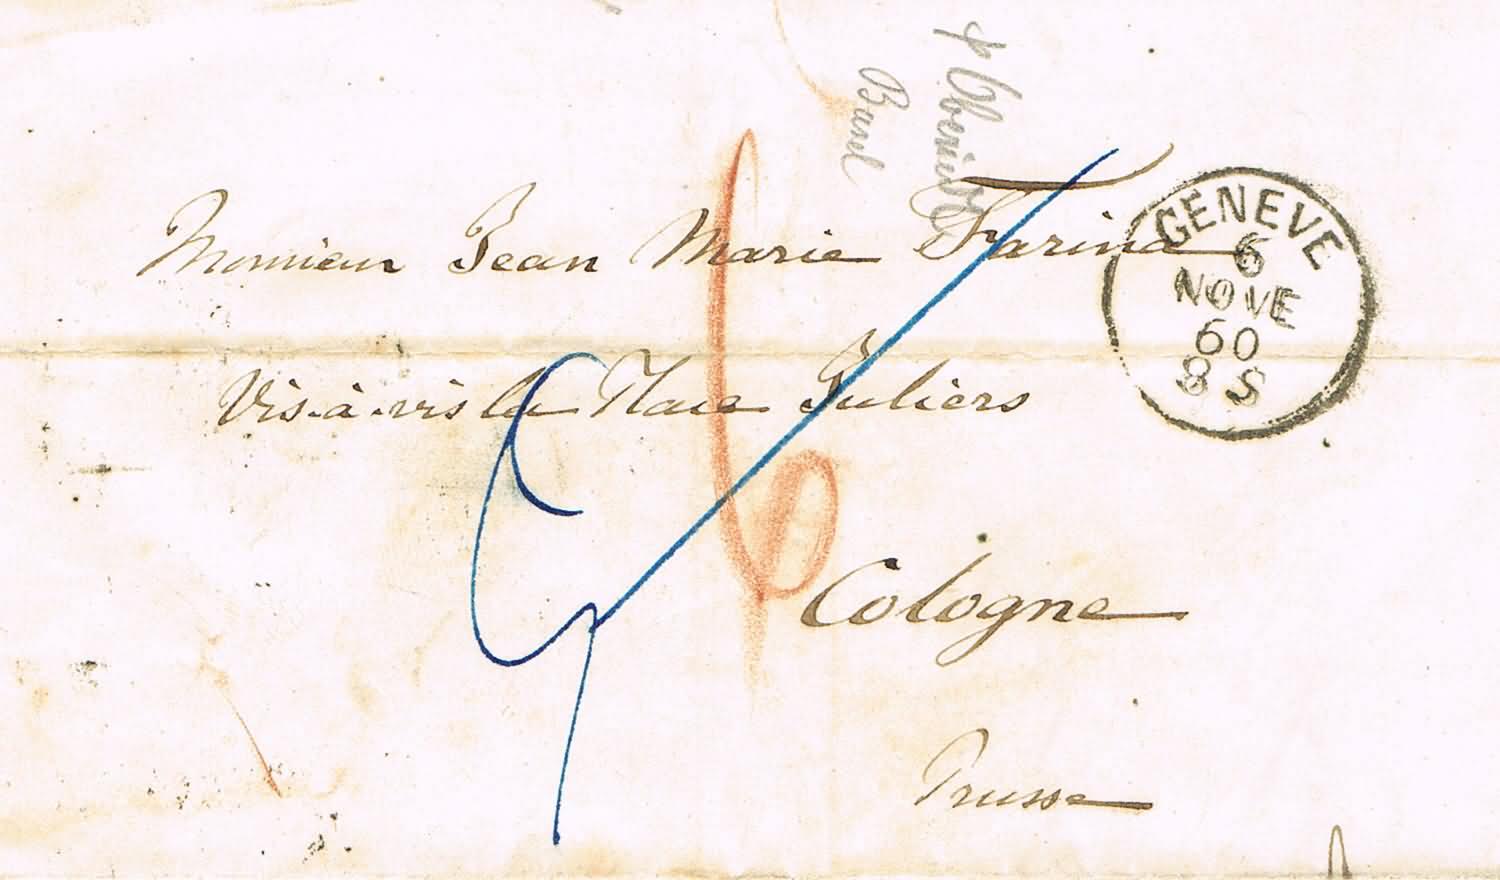 Monsieur Jean Marie Farina
Vis-à-vis la Place Juliers
Cologne
Prusse
GENEVE
6
NOVE
60
8 S
6
Basel